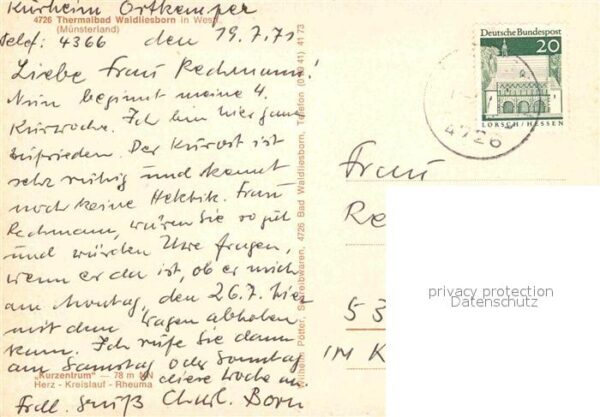 Kurheim Ortkemper
4726 Thermalbad Waldliesborn in Westf.
(Münsterland)
Telef: 4366 den 19.7.71
Liebe Frau Rechmann!
Nun beginnt meine 4.
Kurwoche. Ich bin hier ganz
zufrieden. Der Kurort ist
sehr ruhig und kennt
noch keine Hektik. Frau
Rechmann, wären Sie so gut
und würden Uwe fragen,
wenn er da ist, ob er mich
am Montag, den 26.7. hier
mit dem Wagen abholen
kann. Ich rufe Sie dann
am Samstag oder Sonntag
"Kurzentrum" — 78 m NN
dieser Woche an.
Herz - Kreislauf - Rheuma
Frdl. Gruß Charl. Born
Wilhelm Pötter, Schreibwaren, 4726 Bad Waldliesborn, Telefon (0 29 41) 41 73
Deutsche Bundespost
20
LORSCH/HESSEN
4726
Frau
Re
53
IM K
privacy protection
Datenschutz